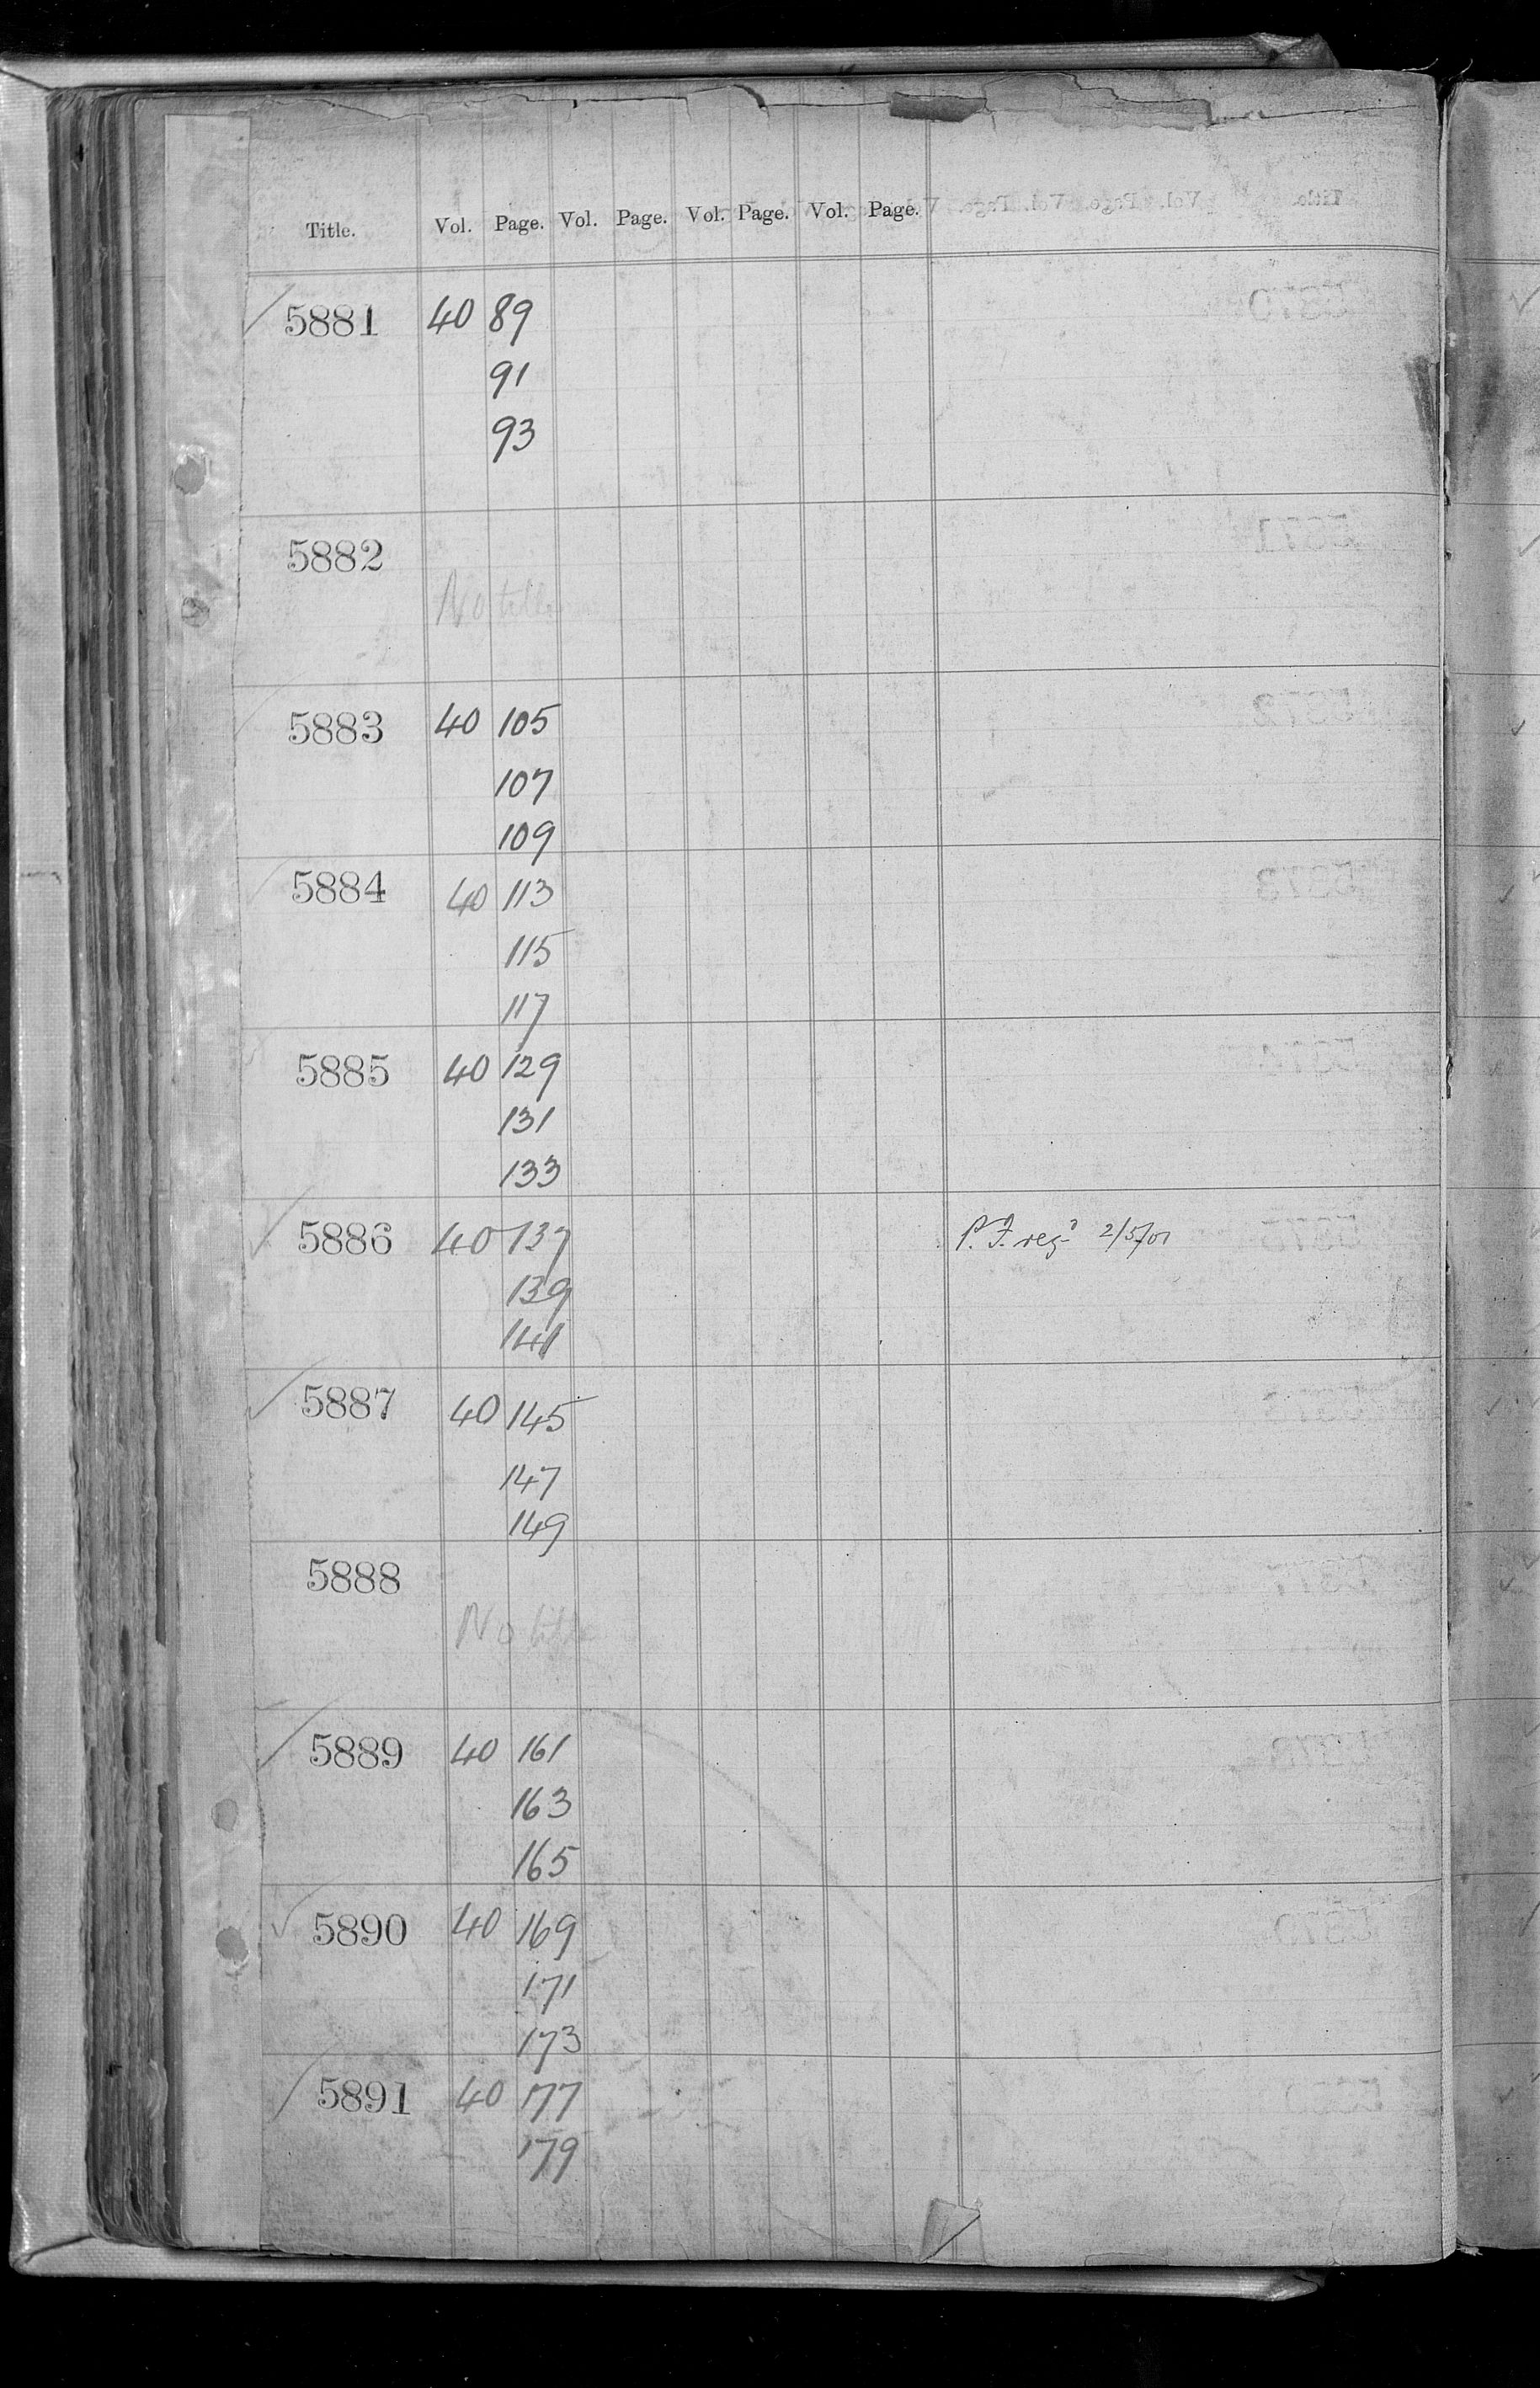 Title. Vol. Page. Vol. Page. Vol. Page. Vol. Page.
5881 40 89
91
93
5882
No title
5883 40 105
107
109
5884 40 113
115
117
5885 40 129
131
133
5886 40 137 P.F. reqd 2/5/01
139
141
5887 40 145
147
149
5888
No title
5889 40 161
163
165
5890 40 169
171
173
5891 40 177
179